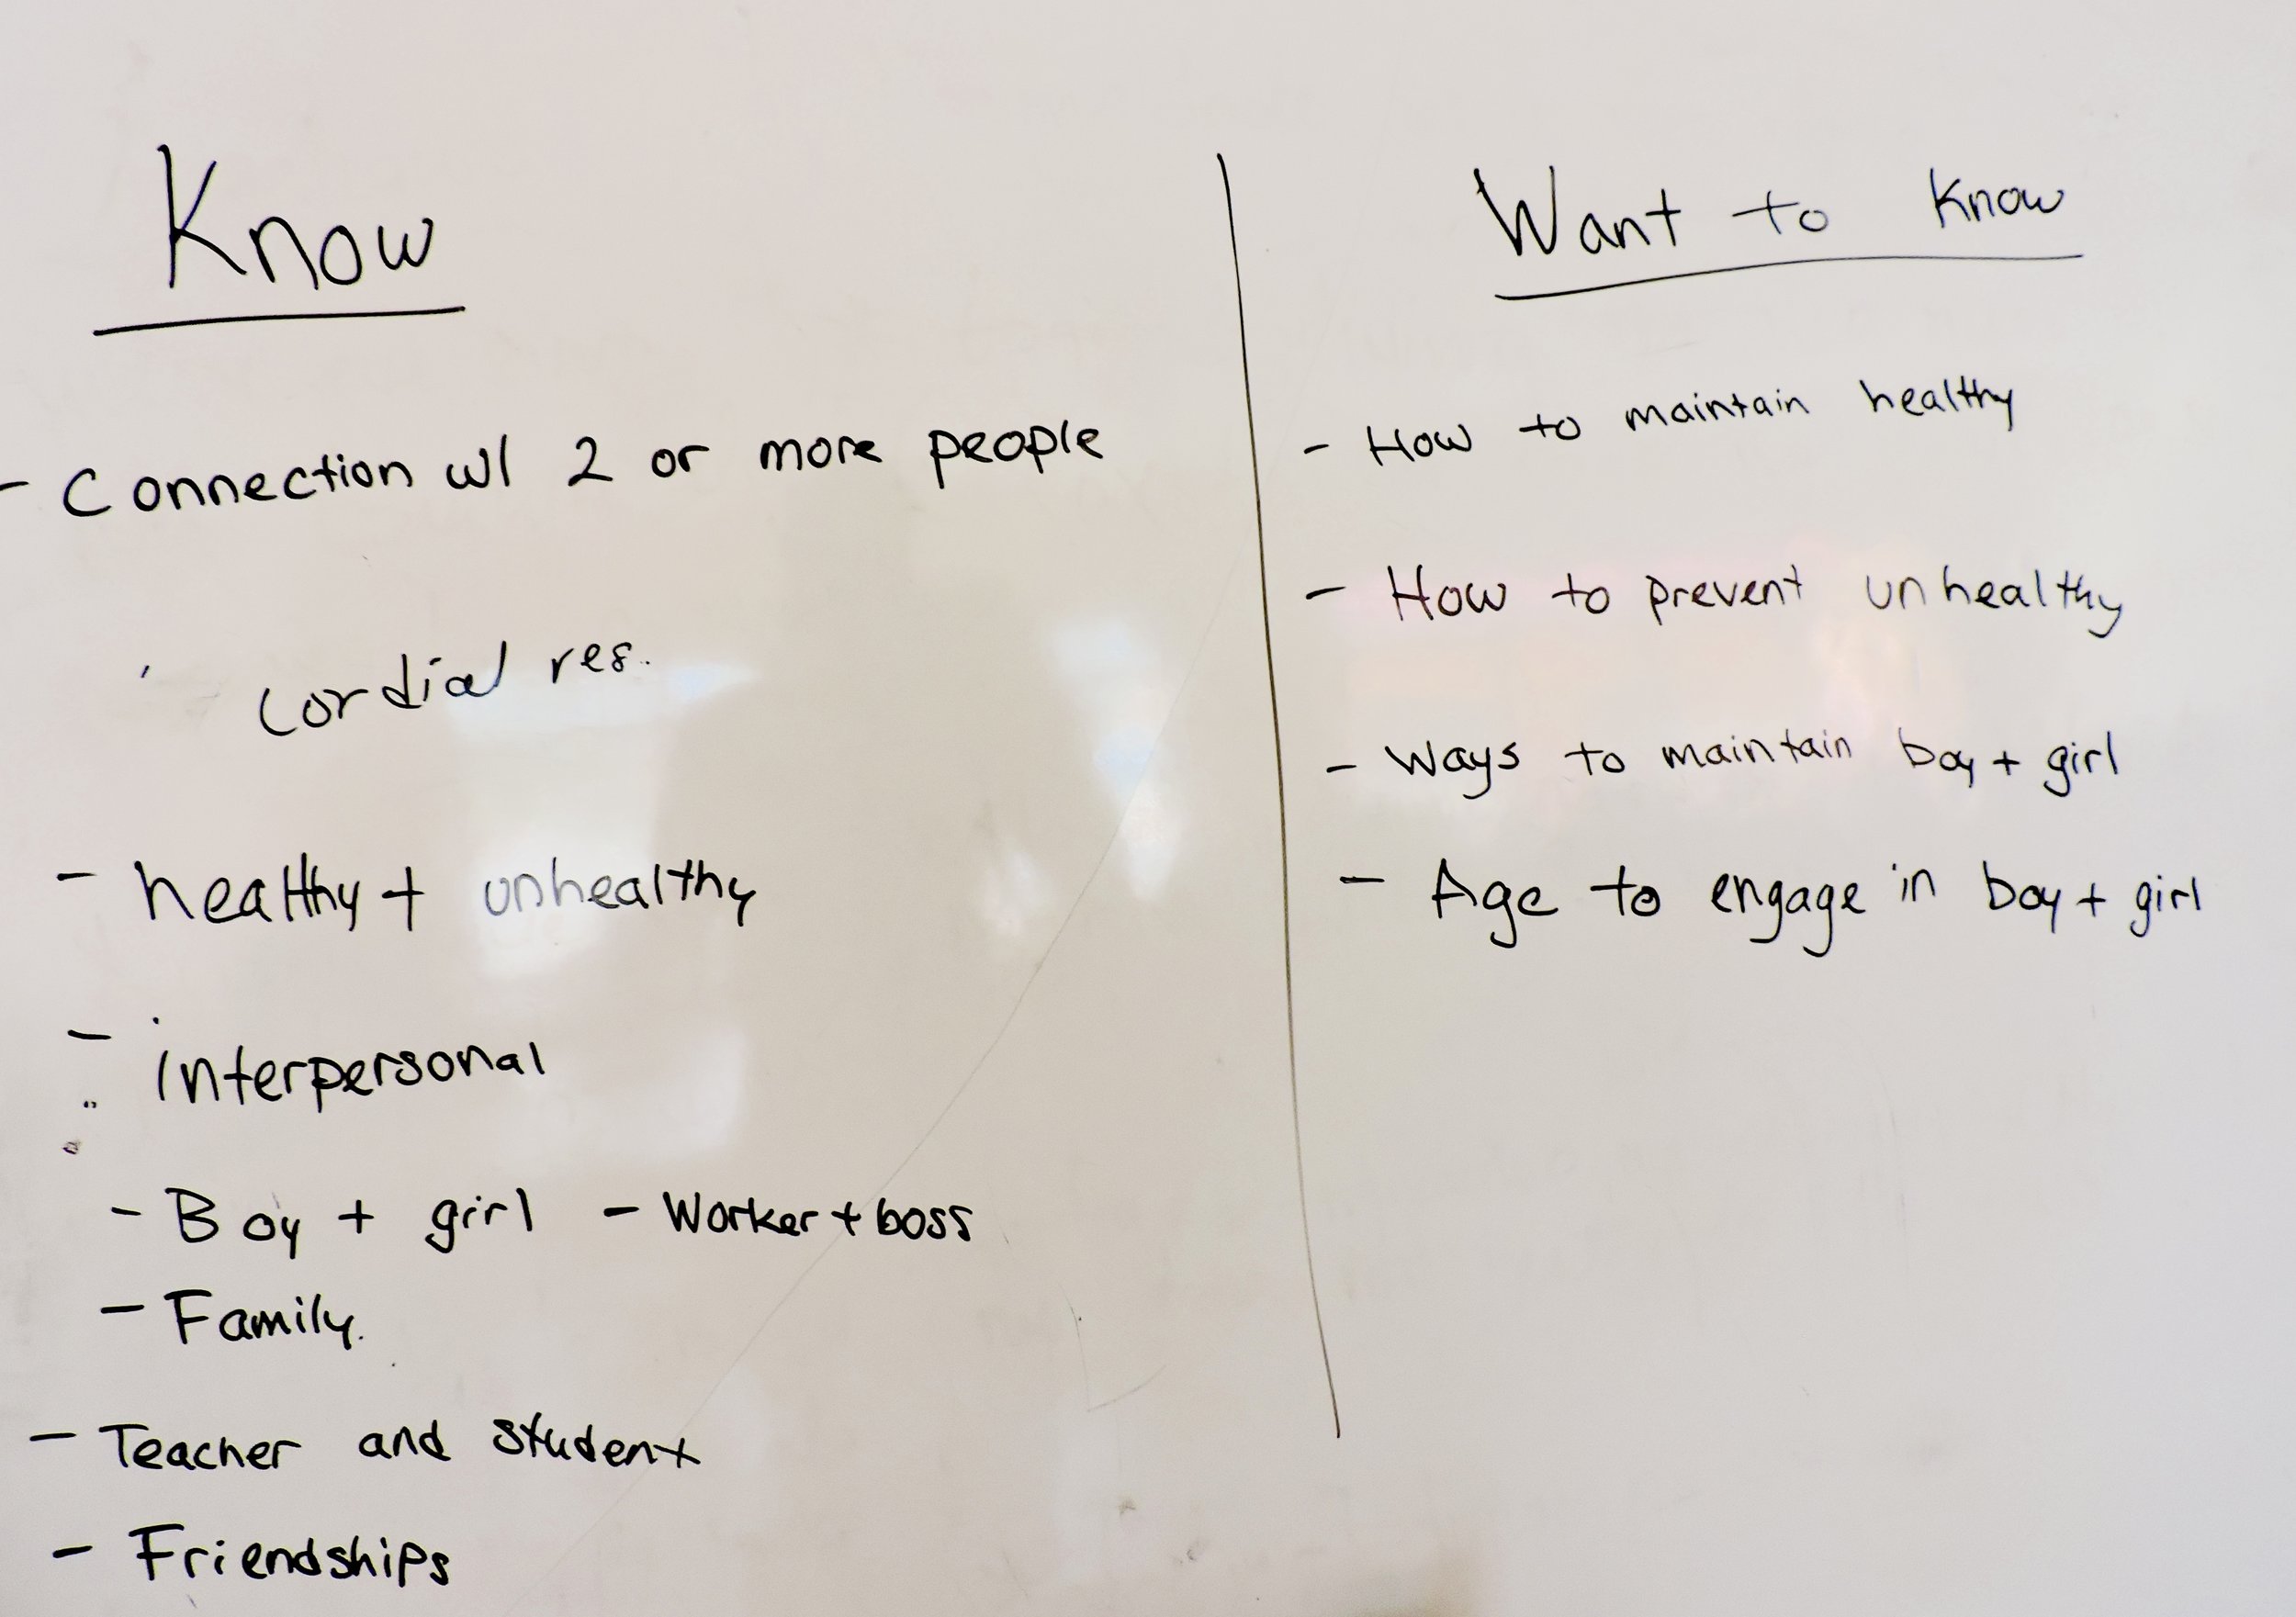 Know
- Connection w/ 2 or more people
cordial res.
- healthy + unhealthy
- interpersonal
- Boy + girl - Worker + boss
- Family.
- Teacher and student
- Friendships
Want to Know
- How to maintain healthy
- How to prevent unhealthy
- Ways to maintain boy + girl
- Age to engage in boy + girl